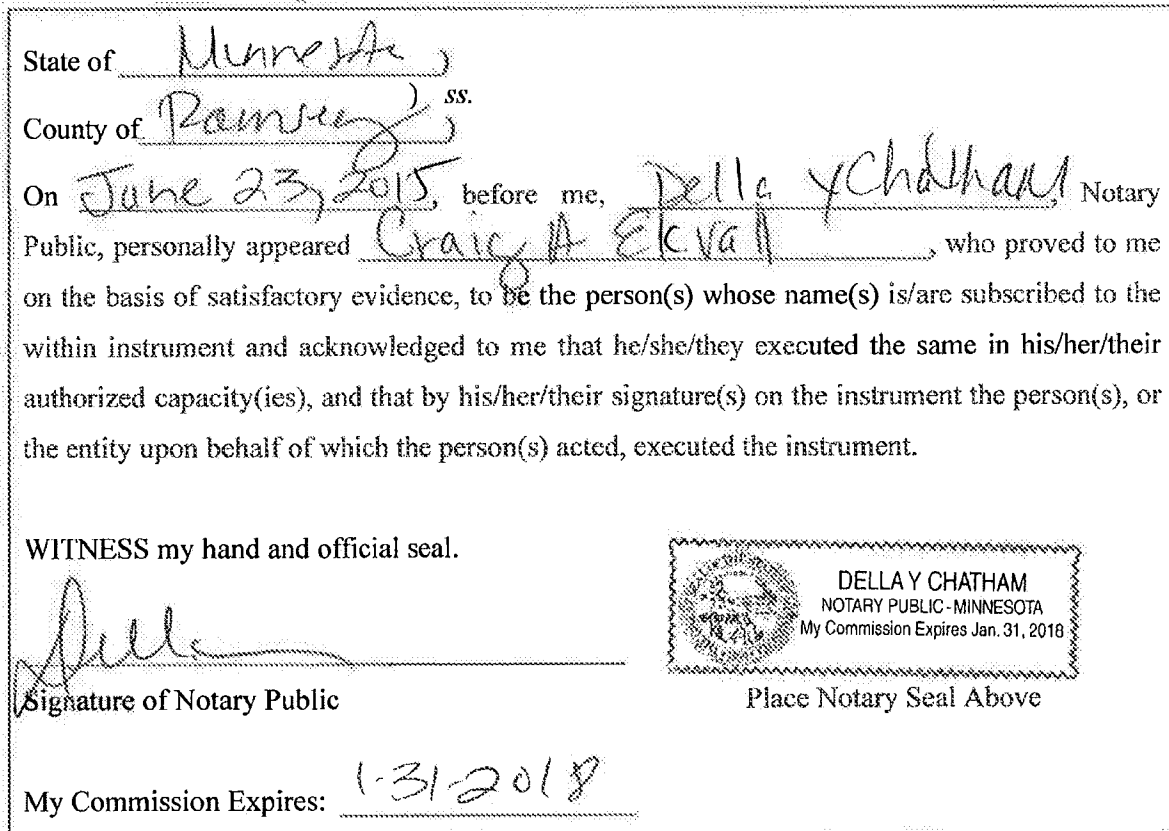 State of Minnesota )
) ss.
County of Ramsey )
On June 23, 2015, before me, Della Y Chatham, Notary
Public, personally appeared Craig A Ekvall, who proved to me
on the basis of satisfactory evidence, to be the person(s) whose name(s) is/are subscribed to the
within instrument and acknowledged to me that he/she/they executed the same in his/her/their
authorized capacity(ies), and that by his/her/their signature(s) on the instrument the person(s), or
the entity upon behalf of which the person(s) acted, executed the instrument.
WITNESS my hand and official seal.
DELLA Y CHATHAM
NOTARY PUBLIC - MINNESOTA
My Commission Expires Jan. 31, 2018
Della
Signature of Notary Public
Place Notary Seal Above
My Commission Expires: 1-31-2018